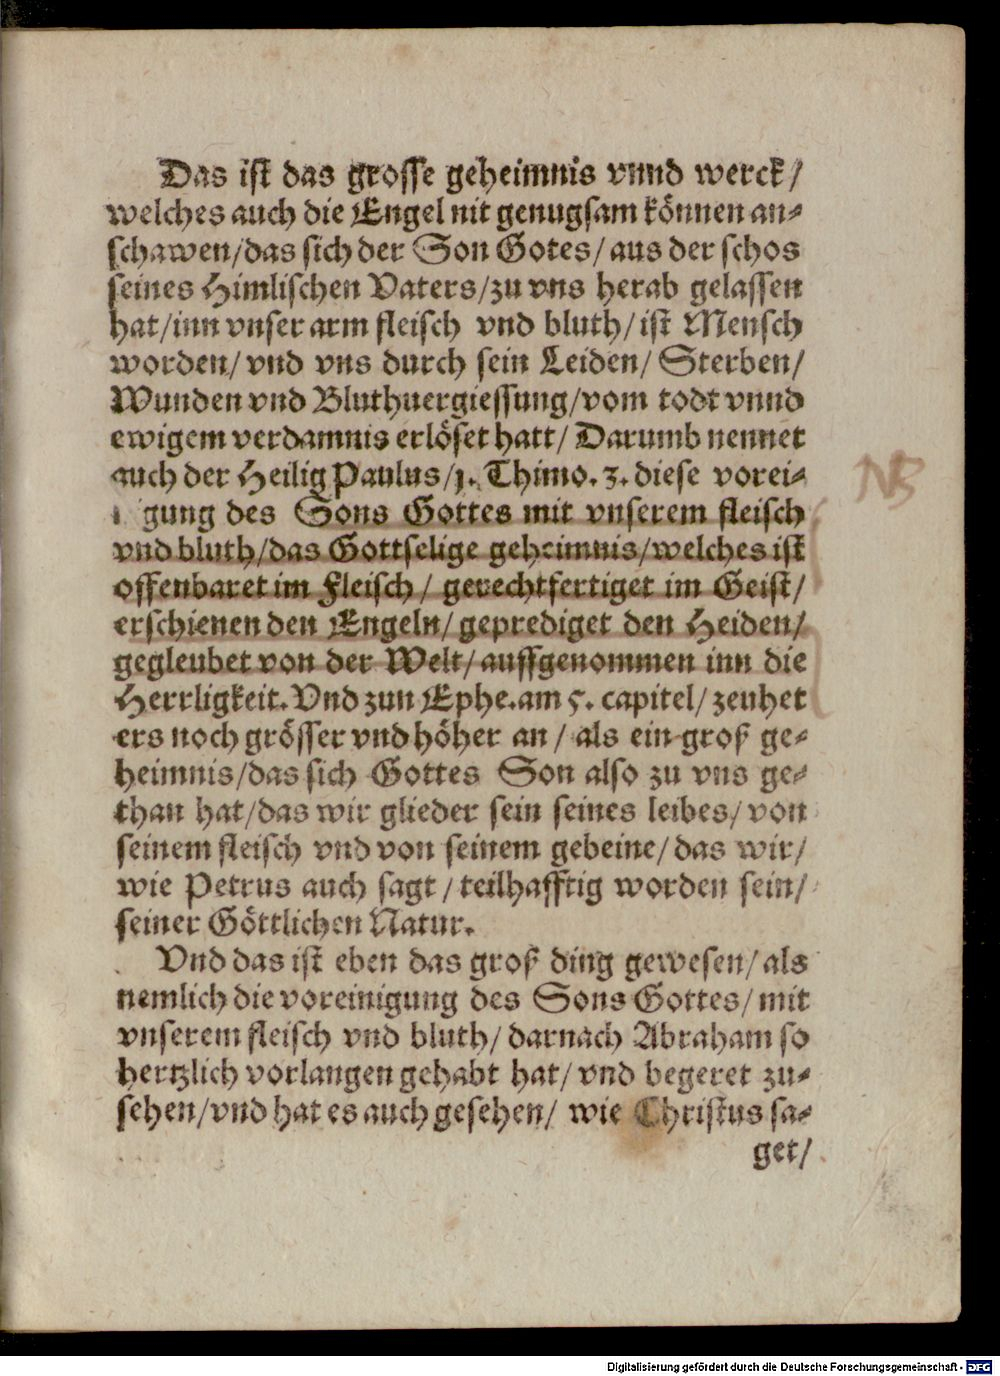 Das ist das grosse geheimnis vnnd werck/
welches auch die Engel nit genugsam können an-
schawen/das sich der Son Gotes/aus der schos
seines Himlischen Vaters/zu vns herab gelassen
hat/inn vnser arm fleisch vnd bluth/ist Mensch
worden/vnd vns durch sein Leiden/Sterben/
Wunden vnd Bluthuergiessung/vom todt vnnd
ewigem verdamnis erlöset hatt/Darumb nennet
auch der Heilig Paulus/1. Thimo. 3. diese vorei-
gung des Sons Gottes mit vnserem fleisch
vnd bluth/das Gottselige geheimnis/welches ist
offenbaret im Fleisch/gerechtfertiget im Geist/
erschienen den Engeln/geprediget den Heiden/
gegleubet von der Welt/auffgenommen inn die
Herrligkeit. Vnd zun Ephe. am 5. capitel/zeuhet
ers noch grösser vnd höher an/als ein groß ge-
heimnis/das sich Gottes Son also zu vns ge-
than hat/das wir glieder sein seines leibes/von
seinem fleisch vnd von seinem gebeine/das wir/
wie Petrus auch sagt/teilhafftig worden sein/
seiner Göttlichen Natur.
Vnd das ist eben das groß ding gewesen/als
nemlich die voreinigung des Sons Gottes/mit
vnserem fleisch vnd bluth/darnach Abraham so
hertzlich vorlangen gehabt hat/vnd begeret zu-
sehen/vnd hat es auch gesehen/wie Christus sa-
get/
NB
Digitalisierung gefördert durch die Deutsche Forschungsgemeinschaft - DFG